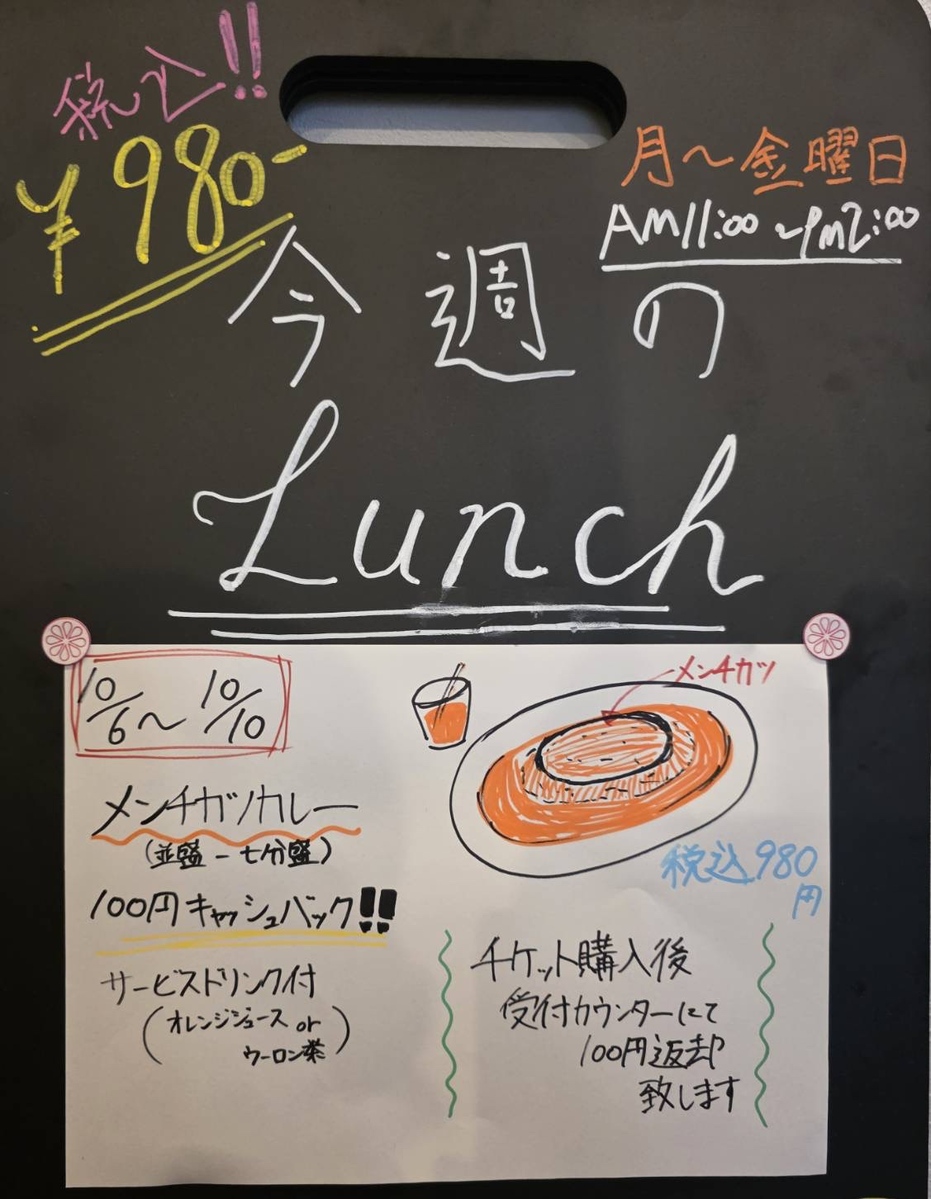 税込!!
¥980-
月～金曜日
AM11:00～PM2:00
今週の
Lunch
10/6～10/10
メンチカツ
メンチカツカレー
(並盛-七分盛)
税込980
円
100円キャッシュバック!!
サービスドリンク付
(オレンジジュース or
ウーロン茶)
チケット購入後
受付カウンターにて
100円返却
致します